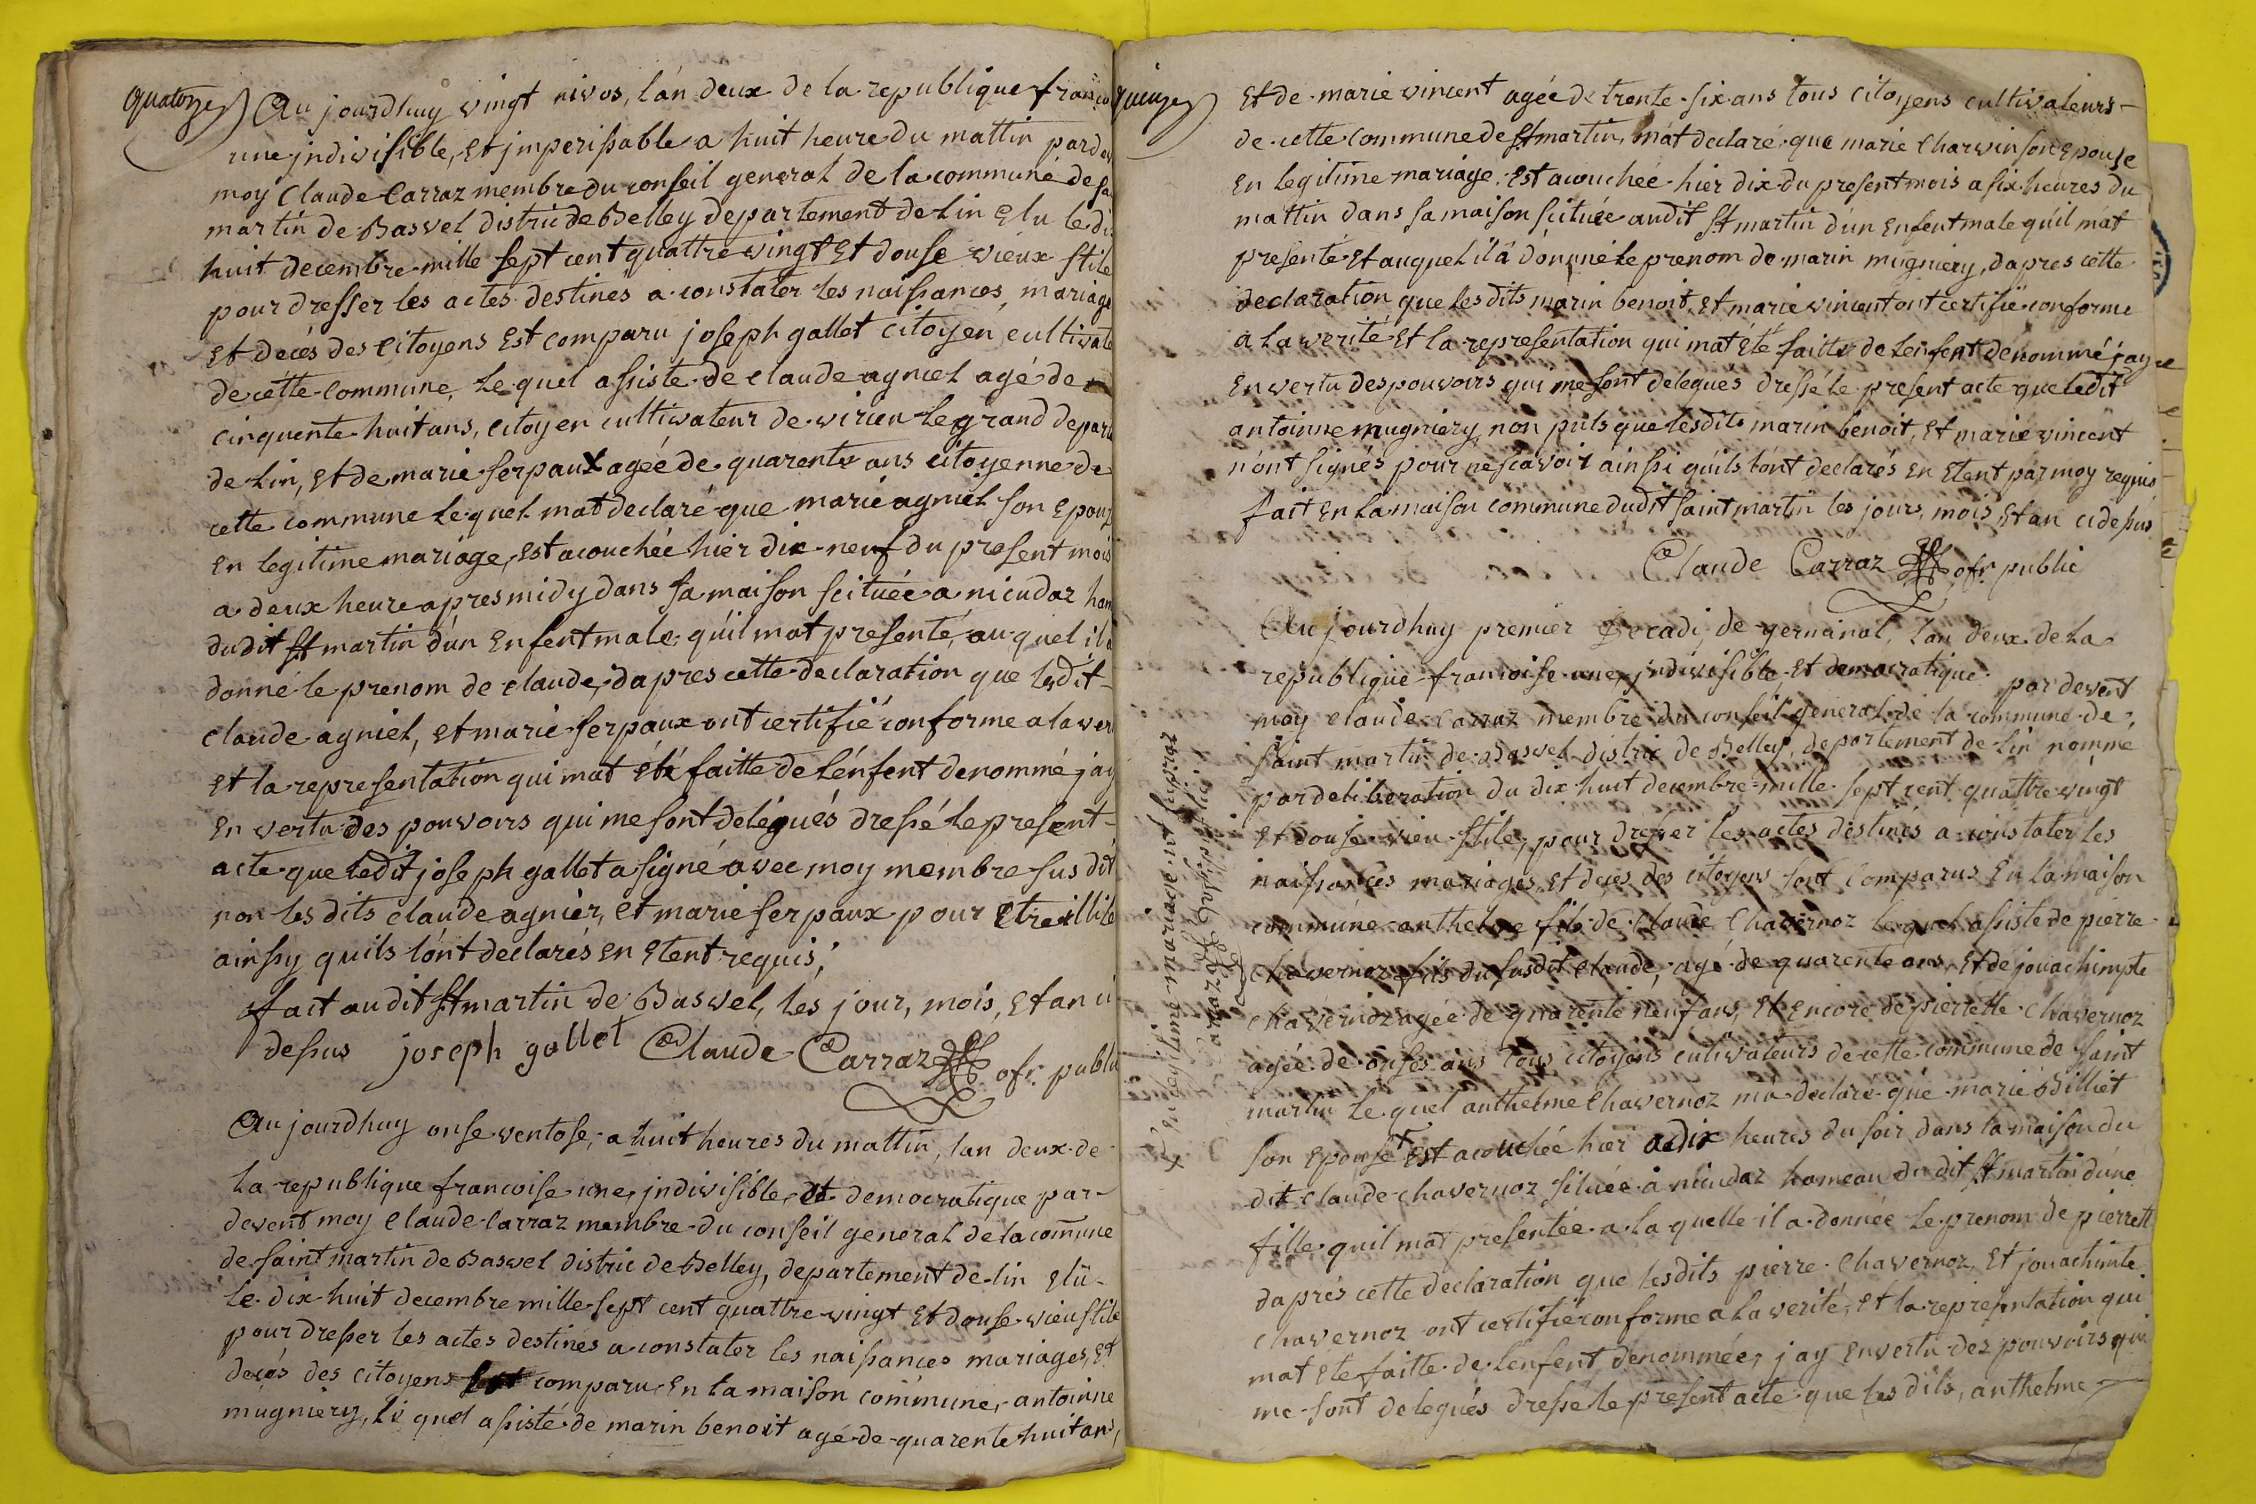 quatorze
Au jourdhuy vingt nivos, l'án deux de la republique franco
une jndivisible, et jmperissable a huit heure du mattin pardev
moy Claude Carraz membre du conseil general de la commune de sa
martin de Basvel distric de Belley departement de Lin Elu le di
huit decembre mille sept cent quattre vingt Et douse vieux stile
pour dresser les actes destinés a constater les naissances, mariage
et decés des Citoyens Est comparu joseph gallet citoyen cultivate
de cétte commune, Lequel assisté de claude agniel agé de
cinquente huit ans, citoyen cultivateur de virieu Le grand depart
de Lin, Et de marie serpaux agée de quarente ans citoyenne de
cette commune Lequel mat declaré que marie agniel son Epouz
En legitime mariage, est acouchée hier dix neuf du present mois
a deux heure apres midy dans sa maison scituée a nicudaz ham
dudit St martin d'ún Enfent male, qu'il mat presenté, auquel il a
donné le prenom de claude, dapres cette declaration que Lesdit
claude agniel, et marie serpaux ont certifié conforme a la ver
Et la representation qui mat été faitte de L'énfent denommé jay
En vertu des pouvoirs qui me sont delégués dressé Le present
acte que Ledit joseph gallet a signé avec moy membre sus dit
non les dits claude agnier, et marie serpaux pour Etre illite
ainssy quils lónt declarés en Etent requis;
fait audit St martin de Basvel, les jour, mois, et an ci
dessus joseph gallet Claude Carraz ofr. public
Au jourdhuy onse ventose, a huit heures du mattin, lan deux de
La republique francoise une, jndivisible, et democratique par
devent moy Claude Carraz membre du conseil general de la comune
de saint martin de Basvel distric de Belley, departement de Lin Elú
Le dix huit decembre mille sept cent quattre vingt Et douse vieu stile
pour dresser les actes destinés a constater les naissances mariages, Et
decés des citoyens Est comparu En la maison commune, antoinne
mugniery, Le quel assisté de marin benoit agé de quarente huit ans,
quinze
Et de marie vincent agée de trente six ans tous citoyens cultivateurs
de cette commune de St martin, mat declaré que marie Charvin son Epouse
En legitime mariage, Est acouchée hier dix du present mois a six heures du
mattin dans sa maison scituée audit St martin dún Enfent male quil mat
presenté et auquel il a donnné Le prenom de marin mugniery, dapres cette
declaration que Les dits marin benoit, et marie vincent ont certifié conforme
a la verité Et la representation qui mat été faitte de Lenfent denommé jay
En vertu des pouvoirs qui me sont delegués dressé Le present acte que Ledit
antoinne mugniery, non puis que Lesdits marin benoit, Et marie vincent
n'ont signés pour ne scavoir ainssi quils lónt declarés En Etent par moy requis
fait En La maison commune dudit saint martin Les jours, mois, et an ci dessus
Claude Carraz ofr public
Au jourdhuy premier Decadi, de germinal, l'an deux de La
republique francoise une, jndivisible, et democratique par devent
moy Claude Carraz membre du conseil general de la commune de
saint martin de Basvel distric de Belley, departement de Lin nommé
par deliberation du dix huit decembre mille sept cent quattre vingt
et douse vieu stile, pour dresser les actes destinés a constater les
naissances mariages et decés des citoyens sont comparus En la maison
commune anthelme fils de Claude Chavernoz Lequel assisté de pierre
Chavernoz fils du susdit Claude, agé de quarente ans, Et de jouachimte
Chavernoz agée de quarente neuf ans, Et encore de pierrette Chavernoz
agée de onses ans tous citoyens cultivateurs de cette commune de saint
martin Le quel anthelme Chavernoz má declaré que marie Billiet
son Epouse + Est acouchée hier a dix heures du soir dans la maison du
dit Claude Chavernoz située a nicudaz hameau dudit St martin dúne
fille quil mat presentée a la quelle il a donnée Le prenom de pierrett
daprés cette declaration que lesdits pierre Chavernoz, Et jouachimte
Chavernoz ont certifié conforme a La verité, et la representation qui
mat Eté faitte de Lenfent denommée, jay En vertu des pouvoirs qui
me sont delegués dressé Le present acte que les dits, anthelme
+ En legitime mariage
Carraz